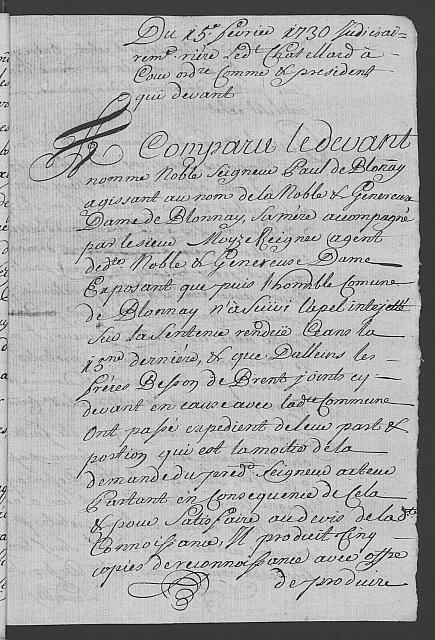 Du 15e fevrier 1730 Judiciai=
remt. rière led.t Chatellard à
Cour ordre Comme & president
qui devant
A Comparu le devant
nommé Noble Seigneur Paul de Blonay
agissant au nom de la Noble & Genereuse
Dame de Blonnay, sa mère accompagné
par le sieur Moyze Reignier agent
de dte Noble & Genereuse Dame
Exposant que puis l'honble Comune
de Blonnay n'a suivi l'apel intojetté
Sur la Sentence rendüe Ceans la
15ne derniere, & que Dailleurs les
frères Besson de Brent joints cy=
devant en cause avec lad.te Commune
Ont passé expedient de leur part &
portion qui est la moitié de la
demande du pred.t Seigneur acteur
Partant en Consequence de Cela
& pour Satisfaire au devis de la d.te
Connoissance, Il produit Cinq
copies de reconnoissance avec offre
de produire